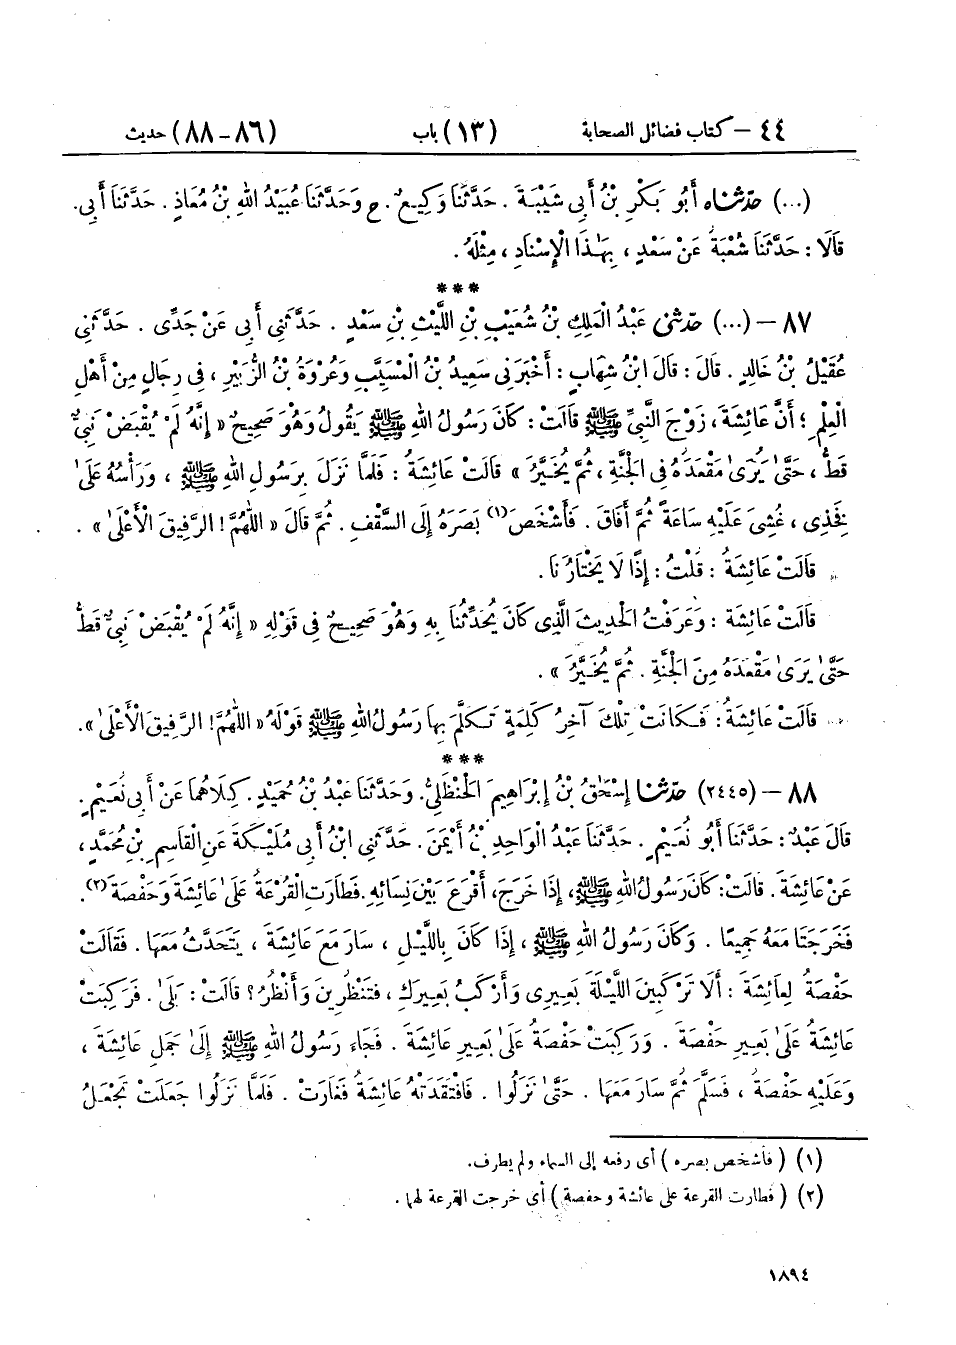 ٤٤ – كتاب فضائل الصحابة (١٣) باب (٨٦ – ٨٨) حديث
(...) حدّثناه أَبُو بَكْرِ بْنُ أَبِي شَيْبَةَ . حَدَّثَنَا وَكِيعٌ . ح وَحَدَّثَنَا عُبَيْدُ اللهِ بْنُ مُعَاذٍ . حَدَّثَنَا أَبِي.
قَالَا : حَدَّثَنَا شُعْبَةُ عَنْ سَعْدٍ ، بِهَٰذَا الْإِسْنَادِ ، مِثْلَهُ .
***
٨٧ – (...) حدّثني عَبْدُ الْمَلِكِ بْنُ شُعَيْبِ بْنِ اللَّيْثِ بْنِ سَعْدٍ . حَدَّثَنِي أَبِي عَنْ جَدِّي . حَدَّثَنِي
عُقَيْلُ بْنُ خَالِدٍ . قَالَ : قَالَ ابْنُ شِهَابٍ : أَخْبَرَنِي سَعِيدُ بْنُ الْمُسَيَّبِ وَعُرْوَةُ بْنُ الزُّبَيْرِ ، فِي رِجَالٍ مِنْ أَهْلِ
الْعِلْمِ ؛ أَنَّ عَائِشَةَ ، زَوْجَ النَّبِيِّ ﷺ قَالَتْ : كَانَ رَسُولُ اللهِ ﷺ يَقُولُ وَهُوَ صَحِيحٌ « إِنَّهُ لَمْ يُقْبَضْ نَبِيٌّ
قَطُّ ، حَتَّىٰ يُرَىٰ مَقْعَدَهُ فِي الْجَنَّةِ ، ثُمَّ يُخَيَّرُ » قَالَتْ عَائِشَةُ : فَلَمَّا نَزَلَ بِرَسُولِ اللهِ ﷺ ، وَرَأْسُهُ عَلَىٰ
فَخِذِي ، غُشِيَ عَلَيْهِ سَاعَةً ثُمَّ أَفَاقَ . فَأَشْخَصَ (١) بَصَرَهُ إِلَى السَّقْفِ . ثُمَّ قَالَ « اللَّهُمَّ ! الرَّفِيقَ الْأَعْلَىٰ » .
قَالَتْ عَائِشَةُ : قُلْتُ : إِذًا لَا يَخْتَارُنَا .
قَالَتْ عَائِشَةُ : وَعَرَفْتُ الْحَدِيثَ الَّذِي كَانَ يُحَدِّثُنَا بِهِ وَهُوَ صَحِيحٌ فِي قَوْلِهِ « إِنَّهُ لَمْ يُقْبَضْ نَبِيٌّ قَطُّ
حَتَّىٰ يَرَىٰ مَقْعَدَهُ مِنَ الْجَنَّةِ . ثُمَّ يُخَيَّرُ » .
قَالَتْ عَائِشَةُ : فَكَانَتْ تِلْكَ آخِرُ كَلِمَةٍ تَكَلَّمَ بِهَا رَسُولُ اللهِ ﷺ قَوْلَهُ « اللَّهُمَّ ! الرَّفِيقَ الْأَعْلَىٰ » .
***
٨٨ – (٢٤٤٥) حدّثنا إِسْحَٰقُ بْنُ إِبْرَاهِيمَ الْحَنْظَلِيُّ. وَحَدَّثَنَا عَبْدُ بْنُ حُمَيْدٍ . كِلَاهُمَا عَنْ أَبِي نُعَيْمٍ .
قَالَ عَبْدٌ : حَدَّثَنَا أَبُو نُعَيْمٍ . حَدَّثَنَا عَبْدُ الْوَاحِدِ بْنُ أَيْمَنَ . حَدَّثَنِي ابْنُ أَبِي مُلَيْكَةَ عَنِ الْقَاسِمِ بْنِ مُحَمَّدٍ ،
عَنْ عَائِشَةَ . قَالَتْ : كَانَ رَسُولُ اللهِ ﷺ ، إِذَا خَرَجَ ، أَقْرَعَ بَيْنَ نِسَائِهِ . فَطَارَتِ الْقُرْعَةُ عَلَىٰ عَائِشَةَ وَحَفْصَةَ (٢) .
فَخَرَجَتَا مَعَهُ جَمِيعًا . وَكَانَ رَسُولُ اللهِ ﷺ ، إِذَا كَانَ بِاللَّيْلِ ، سَارَ مَعَ عَائِشَةَ ، يَتَحَدَّثُ مَعَهَا . فَقَالَتْ
حَفْصَةُ لِعَائِشَةَ : أَلَا تَرْكَبِينَ اللَّيْلَةَ بَعِيرِي وَأَرْكَبُ بَعِيرَكِ ، فَتَنْظُرِينَ وَأَنْظُرُ ؟ قَالَتْ : بَلَىٰ . فَرَكِبَتْ
عَائِشَةُ عَلَىٰ بَعِيرِ حَفْصَةَ . وَرَكِبَتْ حَفْصَةُ عَلَىٰ بَعِيرِ عَائِشَةَ . فَجَاءَ رَسُولُ اللهِ ﷺ إِلَىٰ جَمَلِ عَائِشَةَ ،
وَعَلَيْهِ حَفْصَةُ ، فَسَلَّمَ ثُمَّ سَارَ مَعَهَا . حَتَّىٰ نَزَلُوا . فَافْتَقَدَتْهُ عَائِشَةُ فَغَارَتْ . فَلَمَّا نَزَلُوا جَعَلَتْ تَجْعَلُ
(١) ( فأشخص بصره ) أى رفعه إلى السماء ولم يطرف.
(٢) ( فطارت القرعة على عائشة وحفصة ) أى خرجت القرعة لهما .
١٨٩٤